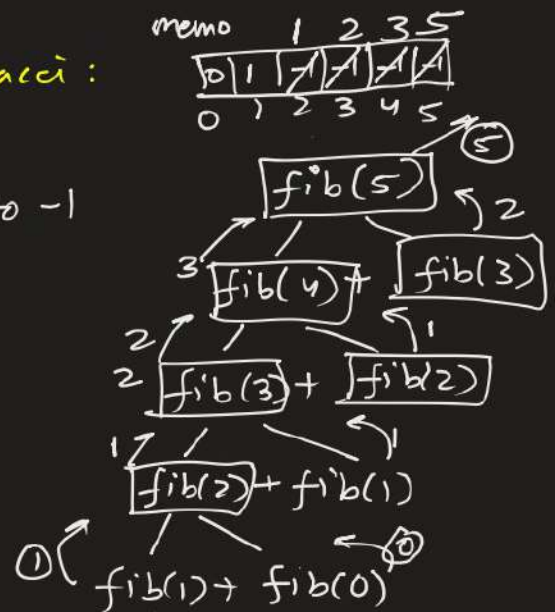 memo 1 2 3 5
acci :
0 1 -1 -1 -1 -1
0 1 2 3 4 5
5
fib(5)
o -1
2
3
fib(4) + fib(3)
2 1
2 fib(3) + fib(2)
1 1
fib(2) + fib(1)
1 0
fib(1) + fib(0)